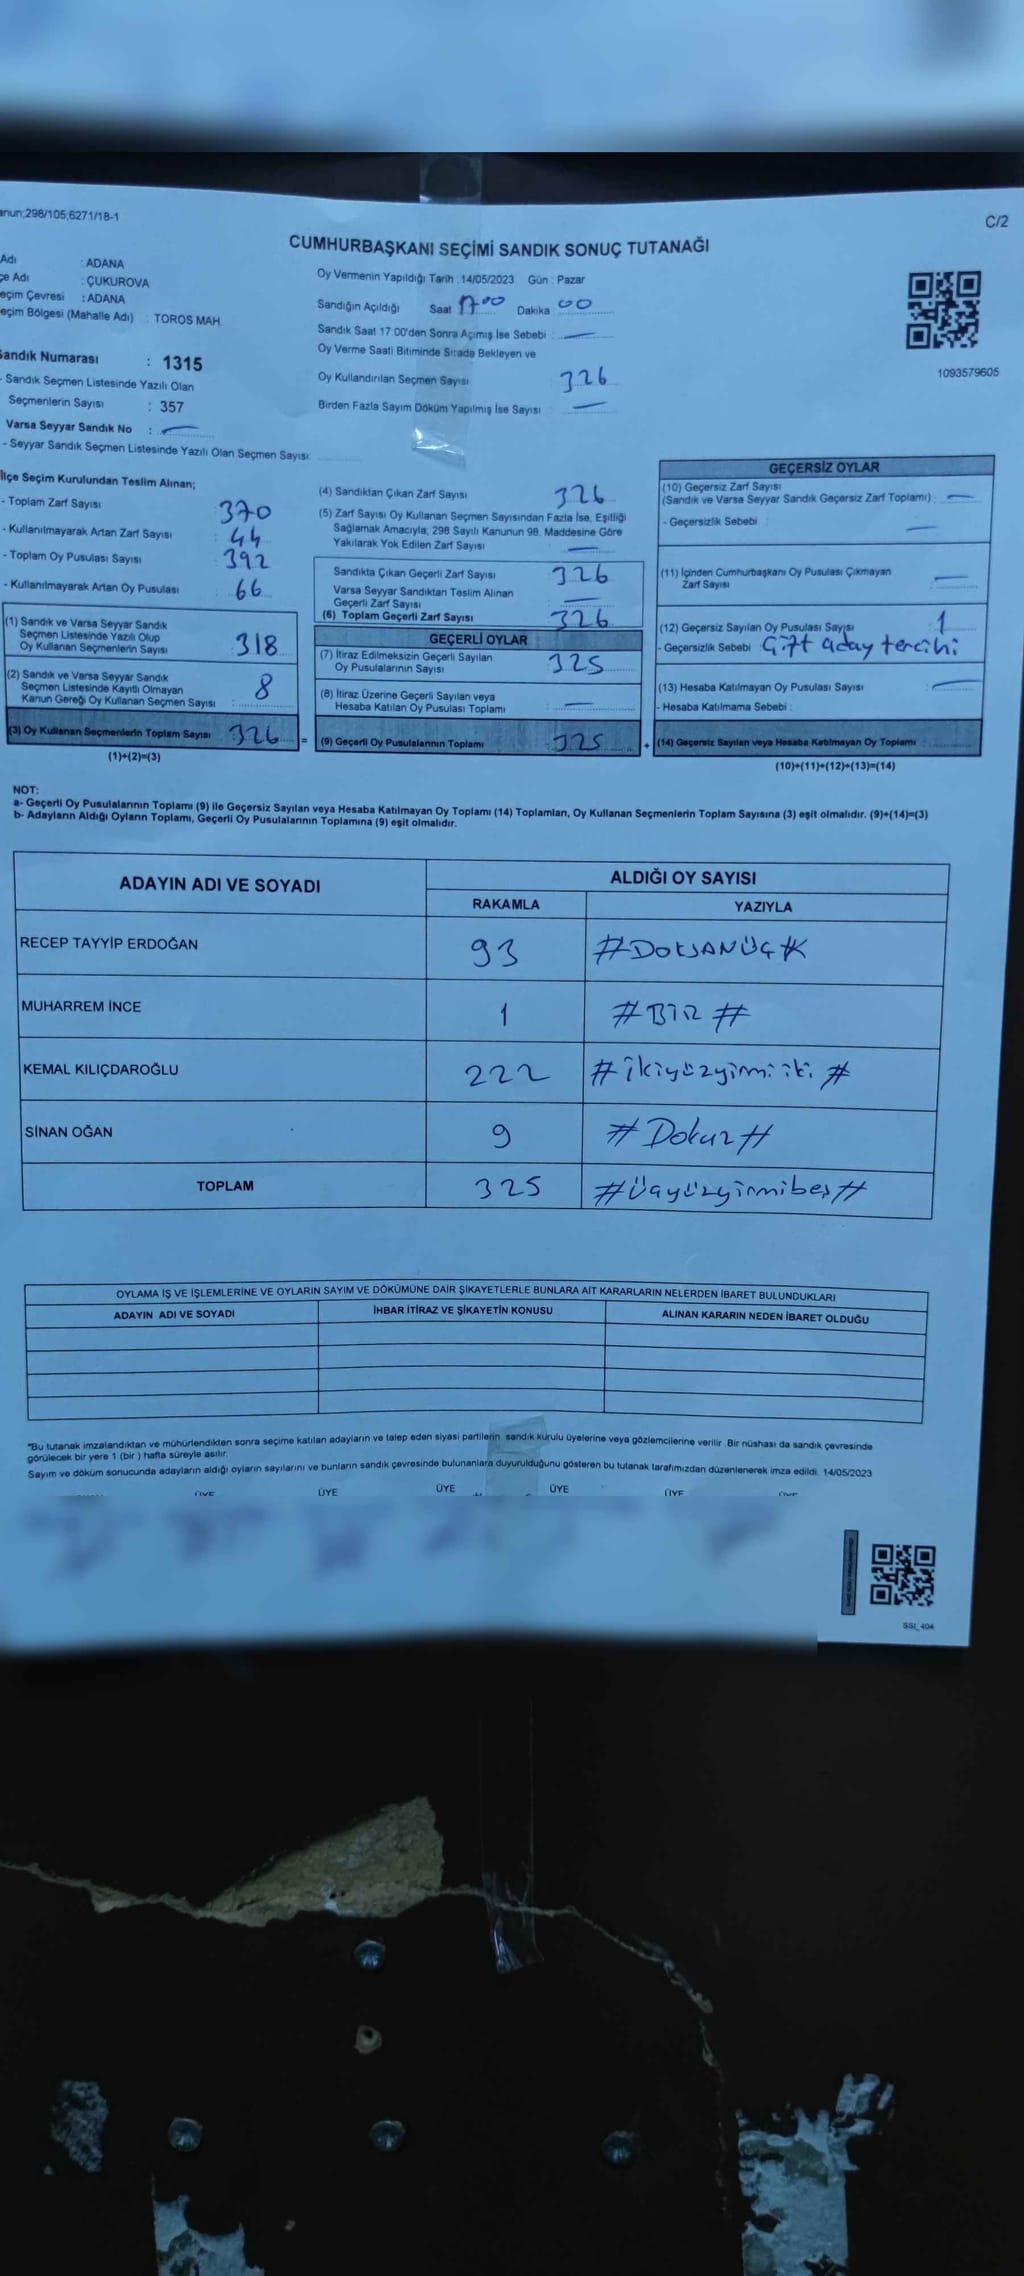 anun;298/105;6271/18-1
C/2
CUMHURBAŞKANI SEÇİMİ SANDIK SONUÇ TUTANAĞI
Adı : ADANA
çe Adı : ÇUKUROVA
eçim Çevresi : ADANA
eçim Bölgesi (Mahalle Adı) : TOROS MAH.
Sandık Numarası : 1315
- Sandık Seçmen Listesinde Yazılı Olan
Seçmenlerin Sayısı : 357
Varsa Seyyar Sandık No : —
- Seyyar Sandık Seçmen Listesinde Yazılı Olan Seçmen Sayısı:
Oy Vermenin Yapıldığı Tarih : 14/05/2023 Gün : Pazar
Sandığın Açıldığı Saat 17:00 Dakika 00
Sandık Saat 17:00'den Sonra Açımış İse Sebebi : —
Oy Verme Saati Bitiminde Sırada Bekleyen ve
Oy Kullandırılan Seçmen Sayısı 326
Birden Fazla Sayım Döküm Yapılmış İse Sayısı : —
1093579605
İlçe Seçim Kurulundan Teslim Alınan;
- Toplam Zarf Sayısı 370
- Kullanılmayarak Artan Zarf Sayısı : 44
- Toplam Oy Pusulası Sayısı 392
- Kullanılmayarak Artan Oy Pusulası 66
(1) Sandık ve Varsa Seyyar Sandık
Seçmen Listesinde Yazılı Olup
Oy Kullanan Seçmenlerin Sayısı : 318
(2) Sandık ve Varsa Seyyar Sandık
Seçmen Listesinde Kayıtlı Olmayan
Kanun Gereği Oy Kullanan Seçmen Sayısı : 8
(3) Oy Kullanan Seçmenlerin Toplam Sayısı 326
(1)+(2)=(3)
(4) Sandıktan Çıkan Zarf Sayısı 326
(5) Zarf Sayısı Oy Kullanan Seçmen Sayısından Fazla İse, Eşitliği
Sağlamak Amacıyla; 298 Sayılı Kanunun 98. Maddesine Göre
Yakılarak Yok Edilen Zarf Sayısı —
Sandıkta Çıkan Geçerli Zarf Sayısı 326
Varsa Seyyar Sandıktan Teslim Alınan
Geçerli Zarf Sayısı —
(6) Toplam Geçerli Zarf Sayısı 326
GEÇERLİ OYLAR
(7) İtiraz Edilmeksizin Geçerli Sayılan
Oy Pusulalarının Sayısı 325
(8) İtiraz Üzerine Geçerli Sayılan veya
Hesaba Katılan Oy Pusulası Toplamı —
= (9) Geçerli Oy Pusulalarının Toplamı 325
GEÇERSİZ OYLAR
(10) Geçersiz Zarf Sayısı
(Sandık ve Varsa Seyyar Sandık Geçersiz Zarf Toplamı) : —
- Geçersizlik Sebebi : —
(11) İçinden Cumhurbaşkanı Oy Pusulası Çıkmayan
Zarf Sayısı —
(12) Geçersiz Sayılan Oy Pusulası Sayısı 1
- Geçersizlik Sebebi Çift aday tercihi
(13) Hesaba Katılmayan Oy Pusulası Sayısı —
- Hesaba Katılmama Sebebi :
+ (14) Geçersiz Sayılan veya Hesaba Katılmayan Oy Toplamı
(10)+(11)+(12)+(13)=(14)
NOT:
a- Geçerli Oy Pusulalarının Toplamı (9) ile Geçersiz Sayılan veya Hesaba Katılmayan Oy Toplamı (14) Toplamları, Oy Kullanan Seçmenlerin Toplam Sayısına (3) eşit olmalıdır. (9)+(14)=(3)
b- Adayların Aldığı Oyların Toplamı, Geçerli Oy Pusulalarının Toplamına (9) eşit olmalıdır.
ADAYIN ADI VE SOYADI ALDIĞI OY SAYISI
RAKAMLA YAZIYLA
RECEP TAYYİP ERDOĞAN 93 #DOKSANÜÇ#
MUHARREM İNCE 1 #BİR#
KEMAL KILIÇDAROĞLU 222 #ikiyüzyirmiiki#
SİNAN OĞAN 9 #Dokuz#
TOPLAM 325 #Üçyüzyirmibeş#
OYLAMA İŞ VE İŞLEMLERİNE VE OYLARIN SAYIM VE DÖKÜMÜNE DAİR ŞİKAYETLERLE BUNLARA AİT KARARLARIN NELERDEN İBARET BULUNDUKLARI
ADAYIN ADI VE SOYADI İHBAR İTİRAZ VE ŞİKAYETİN KONUSU ALINAN KARARIN NEDEN İBARET OLDUĞU
"Bu tutanak imzalandıktan ve mühürlendikten sonra seçime katılan adayların ve talep eden siyasi partilerin sandık kurulu üyelerine veya gözlemcilerine verilir. Bir nüshası da sandık çevresinde
görülecek bir yere 1 (bir) hafta süreyle asılır.
Sayım ve döküm sonucunda adayların aldığı oyların sayılarını ve bunların sandık çevresinde bulunanlara duyurulduğunu gösteren bu tutanak tarafımızdan düzenlenerek imza edildi. 14/05/2023
ÜYE ÜYE ÜYE ÜYE ÜYE
SSI_404